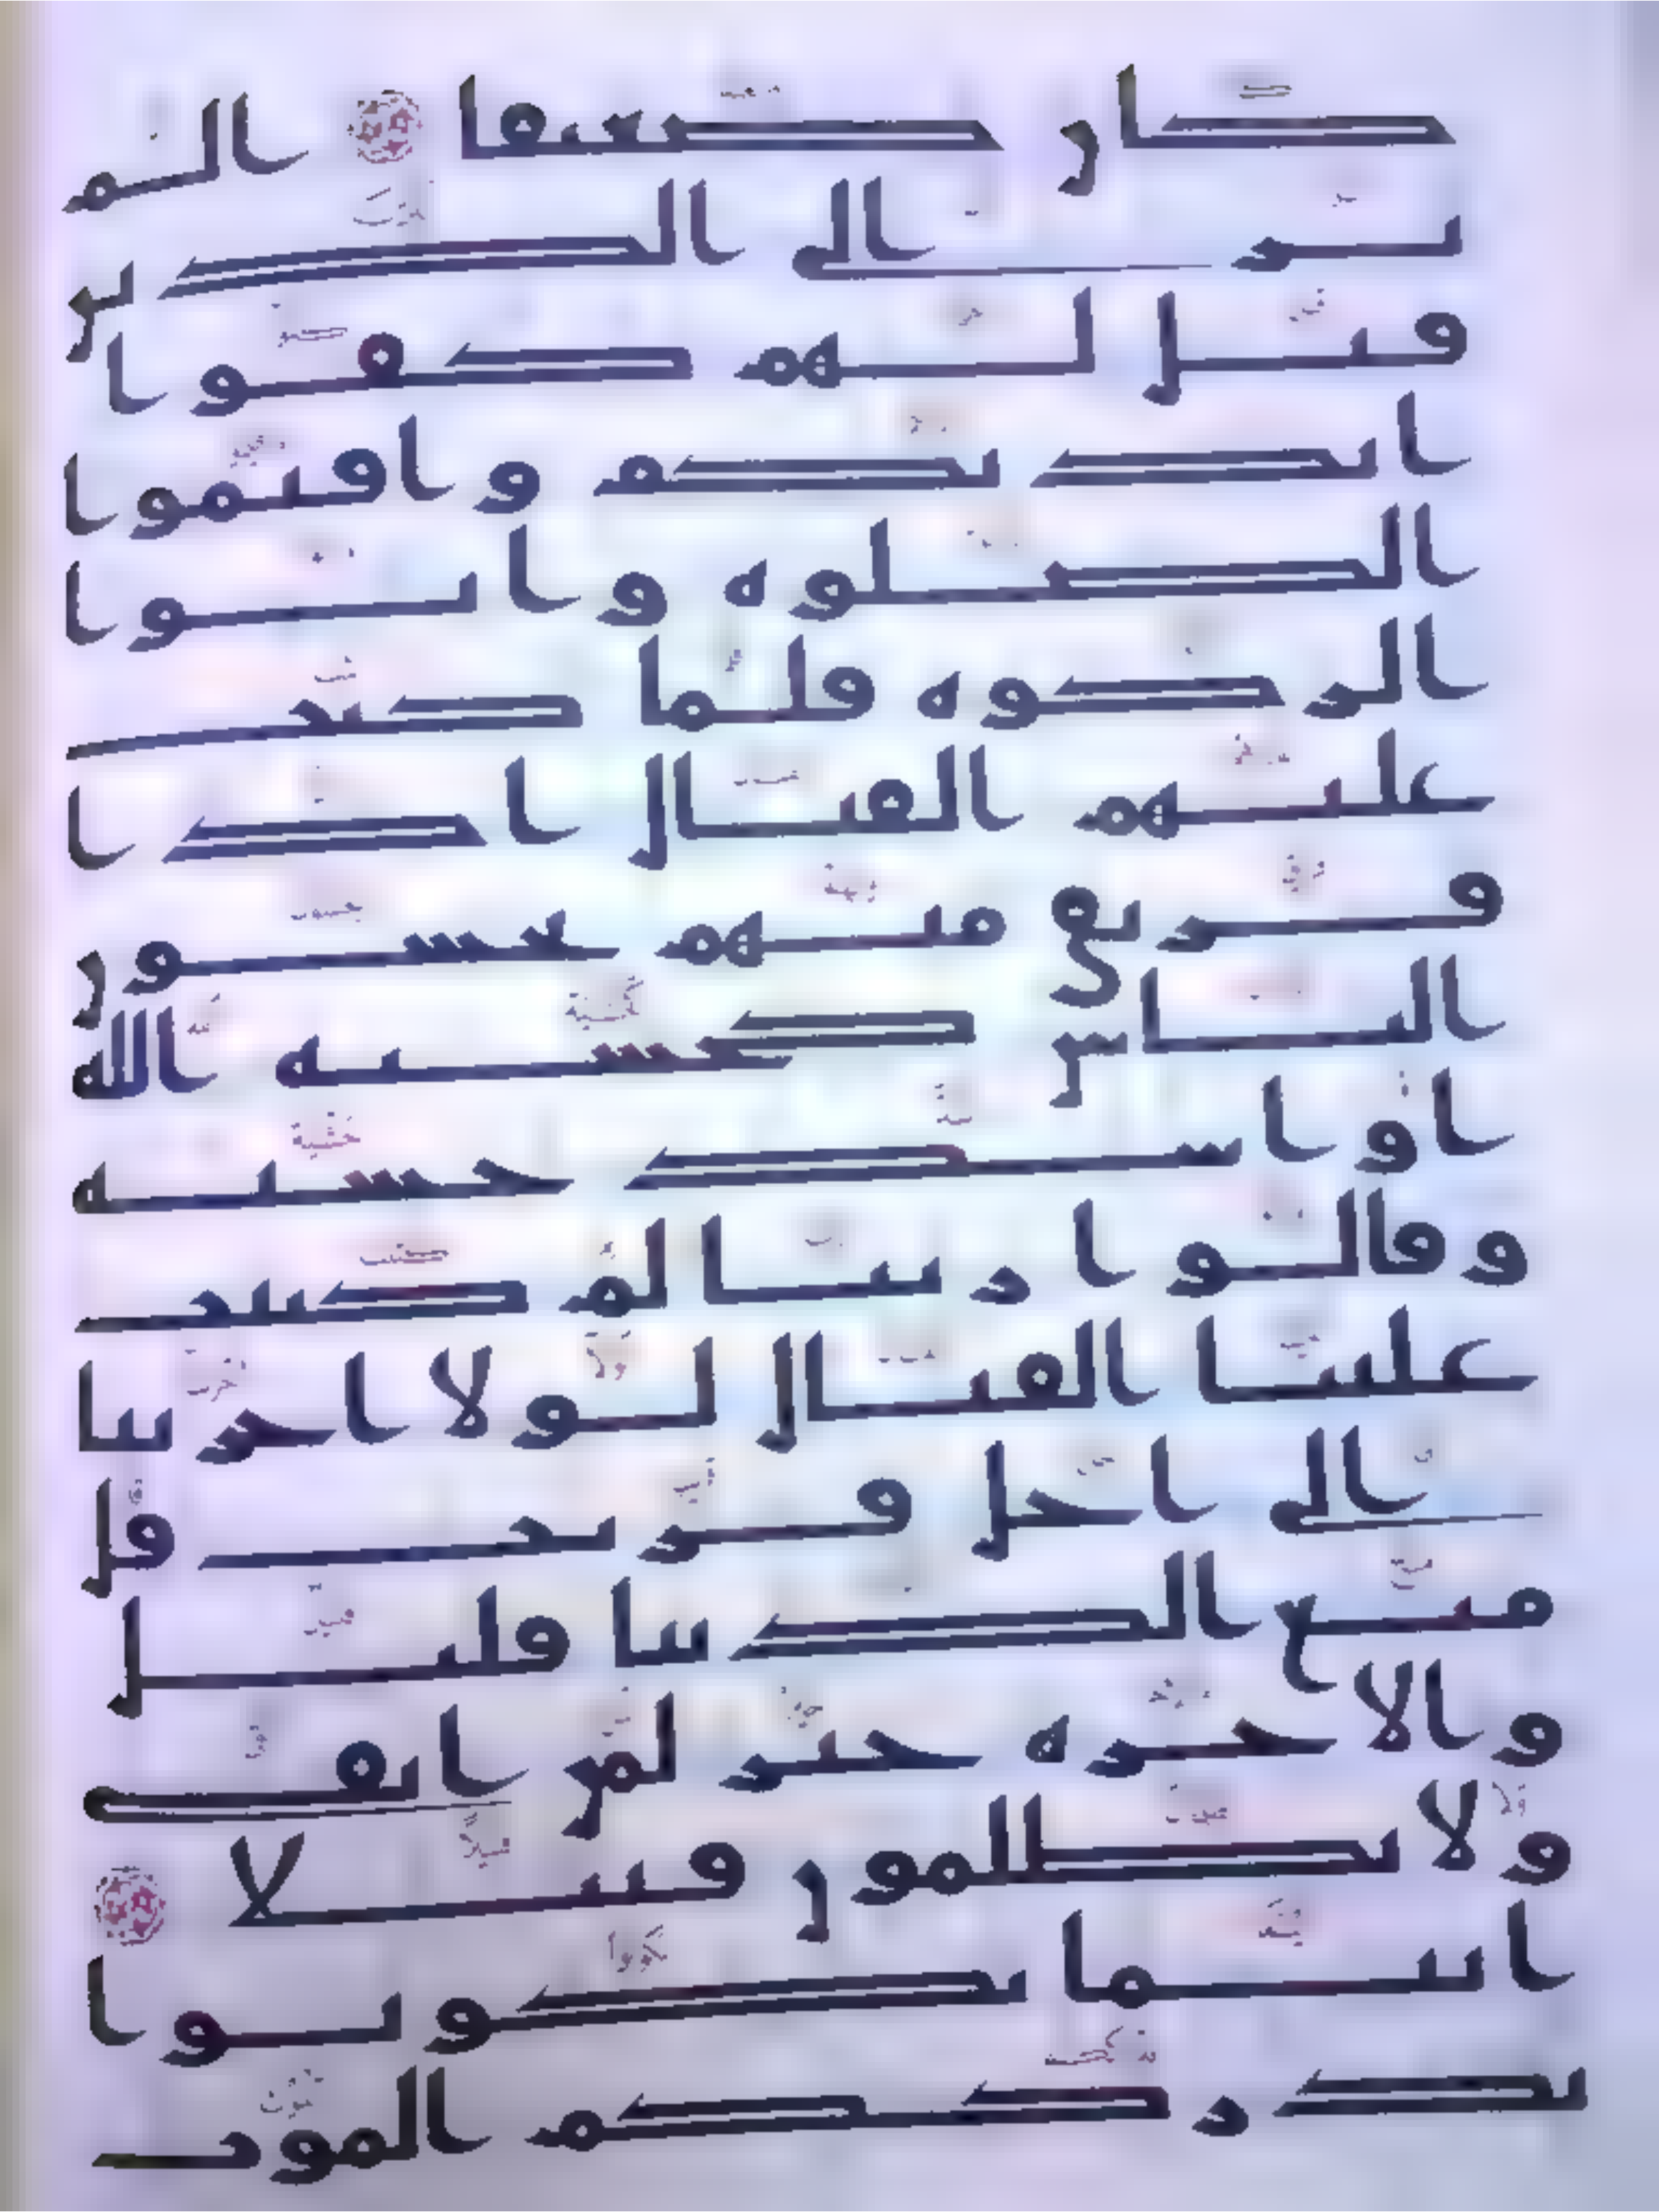 كان ضعيفا الم
تر الى الذين
قيل لهم كفوا
ايديكم واقيموا
الصلوه واتوا
الزكوه فلما كتب
عليهم القتال اذا
فريق منهم يخشون
الناس كخشيه الله
او اشد خشيه
وقالوا ربنا لم كتبت
علينا القتال لولا اخرتنا
الى اجل قريب قل
متع الدنيا قليل
والاخره خير لمن اتقى
ولا تظلمون فتيلا
اينما تكونوا
يدرككم الموت